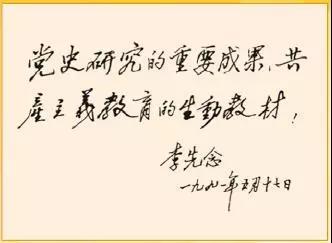 党史研究的重要成果、共
產主義教育的生動教材！
李先念
一九九一年五月十七日